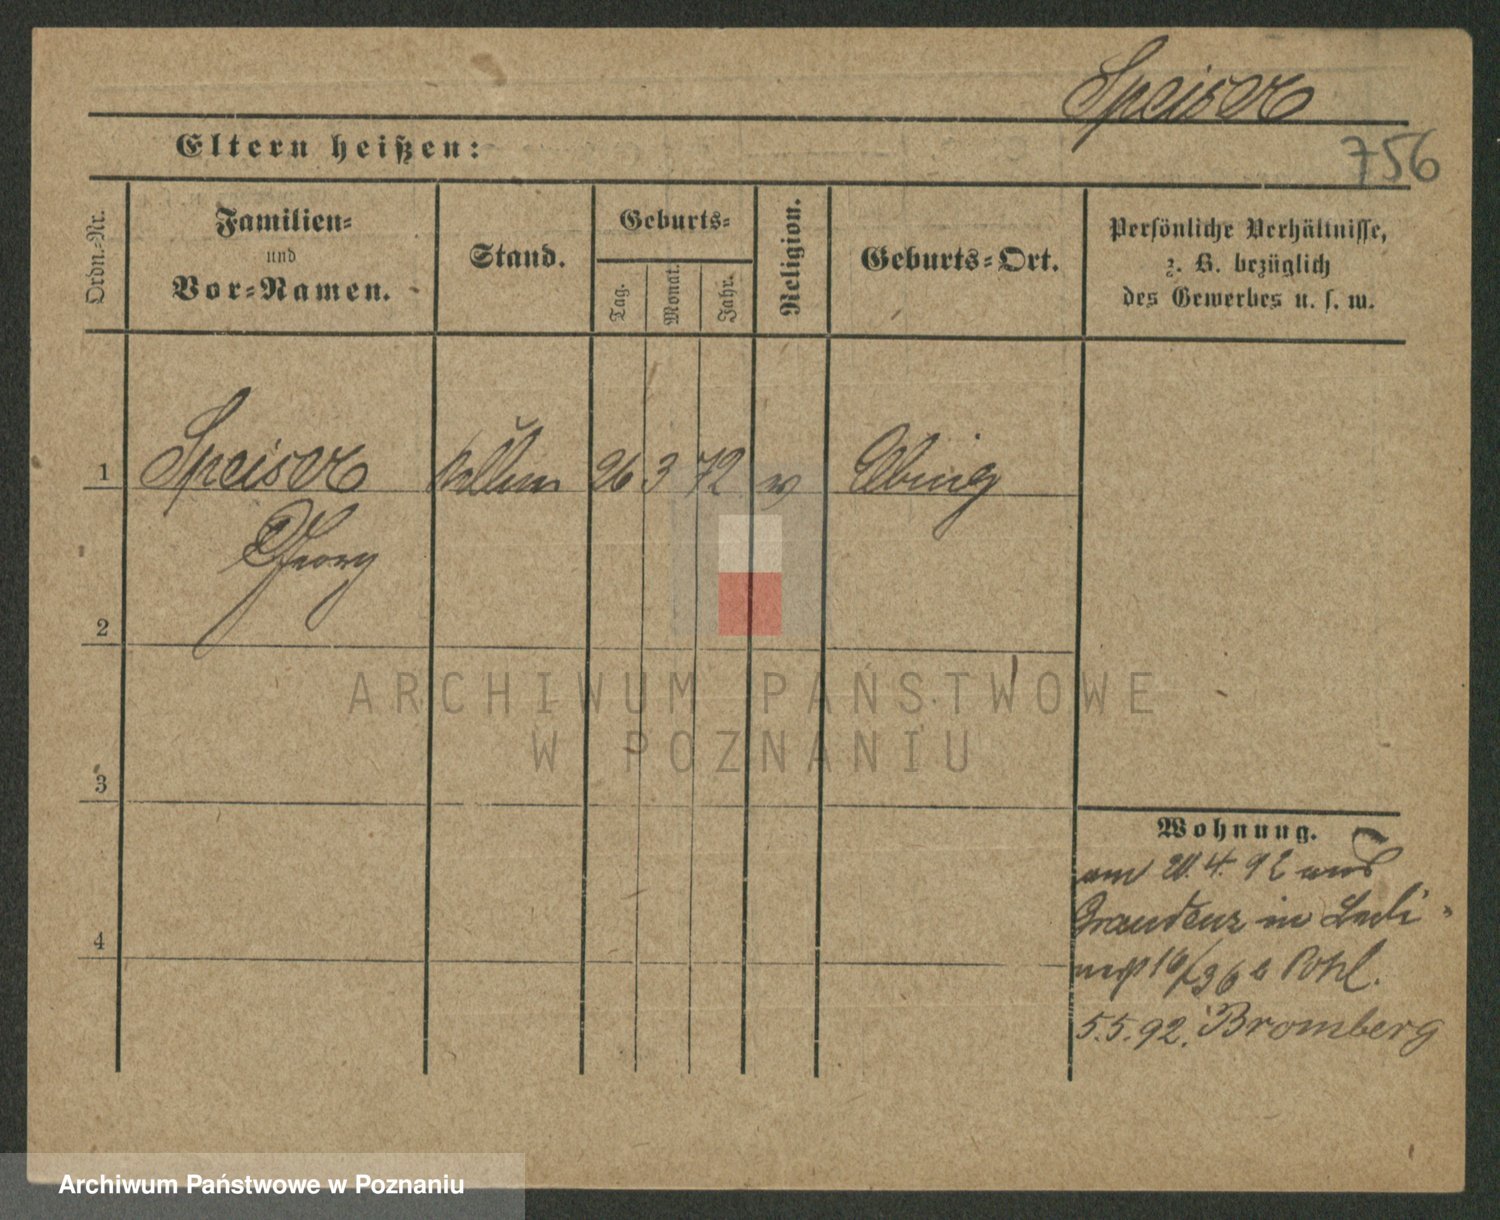 Speiser
756
Eltern heißen:
Ordn.-Nr.
Familien-
und
Vor-Namen.
Stand.
Geburts-
Tag.
Monat.
Jahr.
Religion.
Geburts-Ort.
Persönliche Verhältnisse,
z. B. bezüglich
des Gewerbes u. s. w.
1
Speiser
26
3
72
Elbing
Georg
2
3
4
Wohnung.
am 20.4.92 aus
Graudenz in
b Pohl.
5.5.92. Bromberg
ARCHIWUM PAŃSTWOWE
W POZNANIU
Archiwum Państwowe w Poznaniu